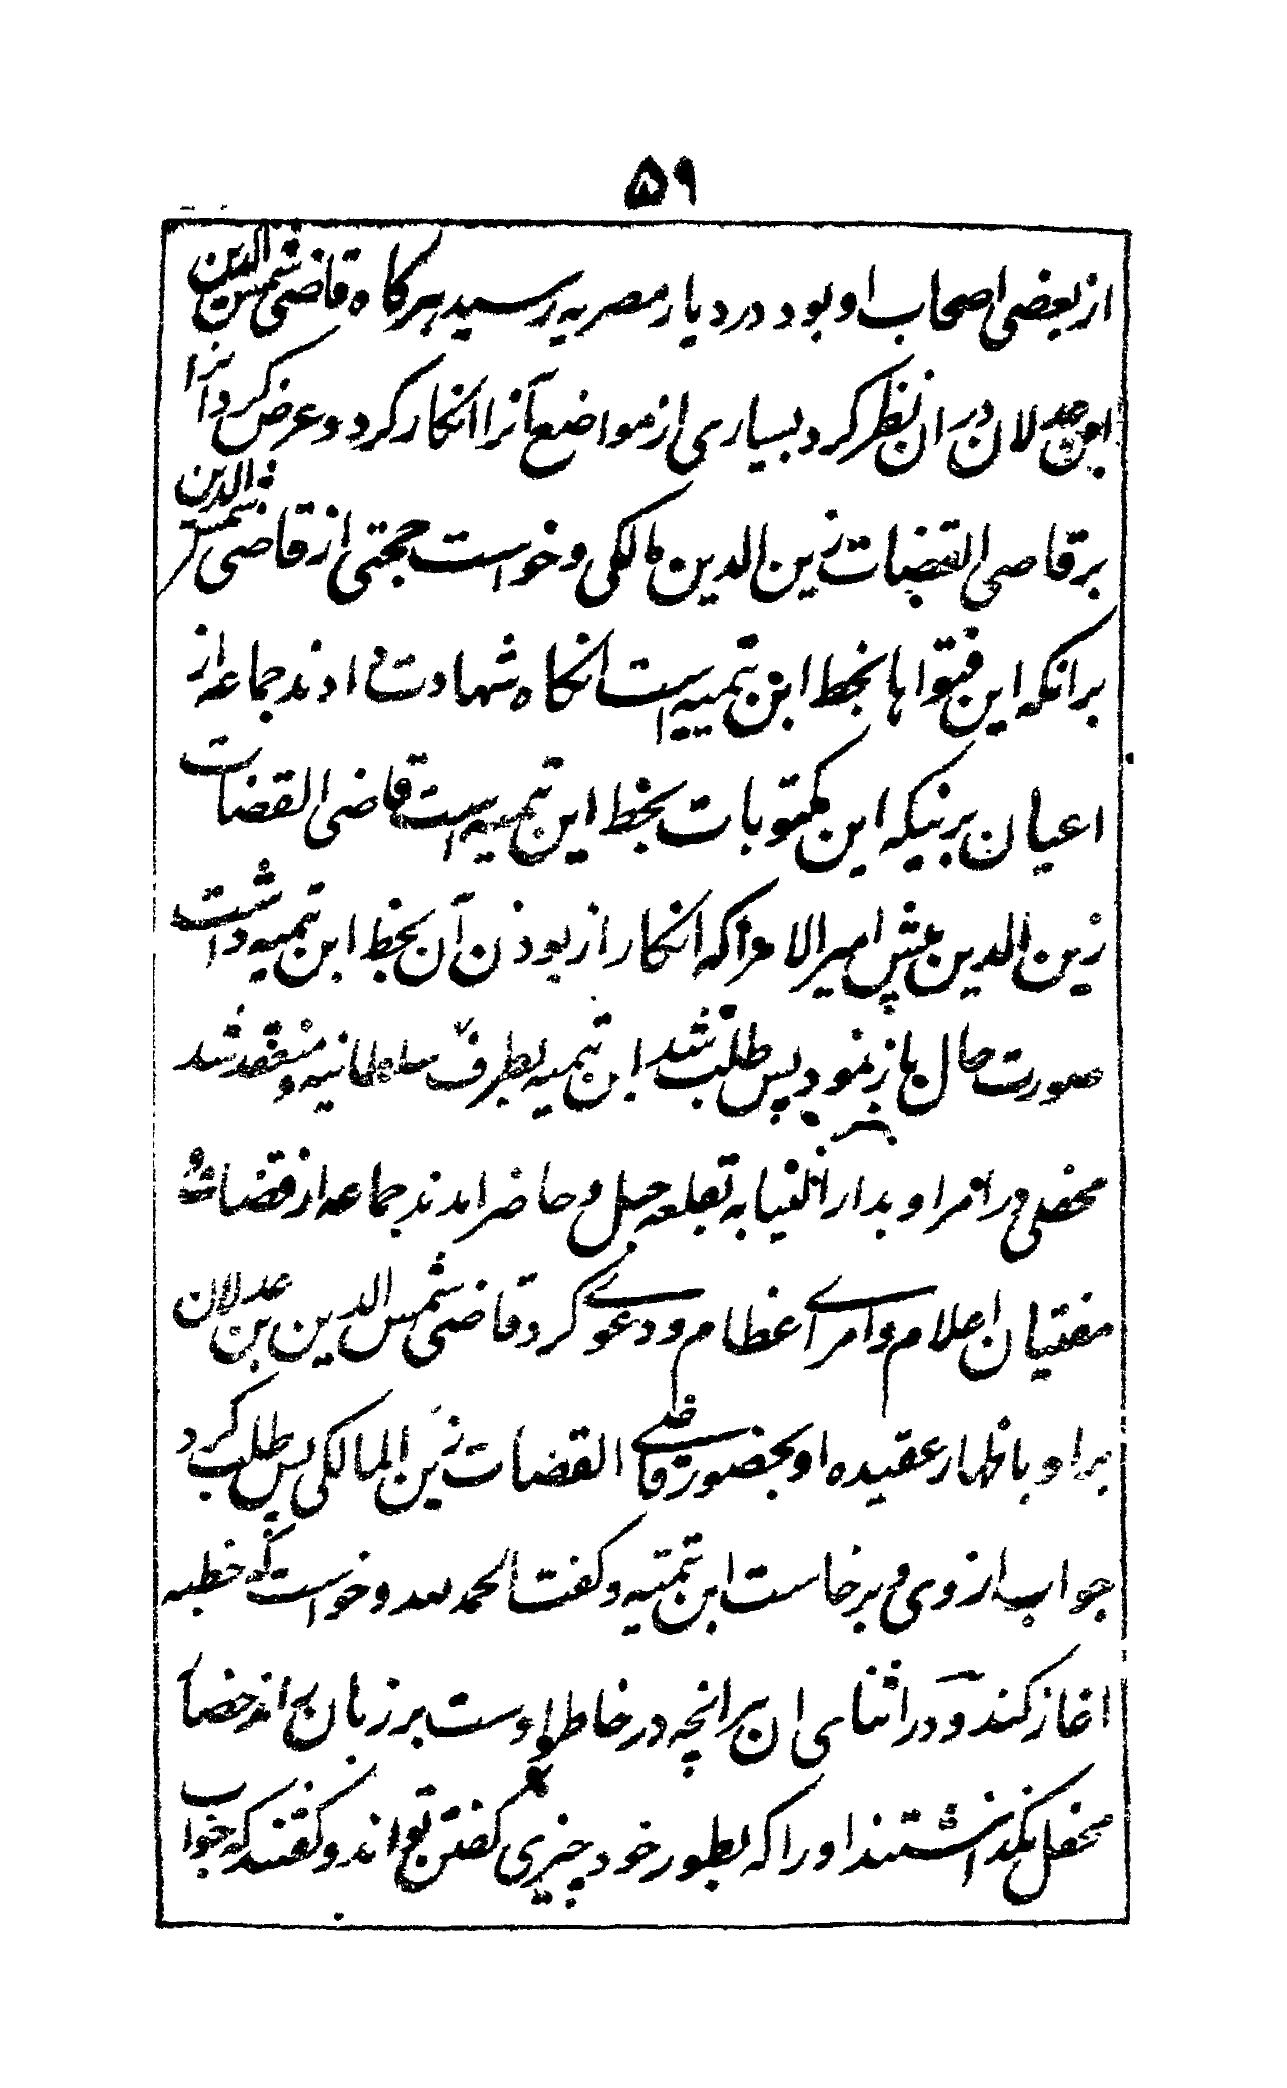 ۵۹
از بعضی اصحاب او بود در دیار مصریه رسید هرکاه قاضی شمس الدین
ابن عدلان در ان نظر کرد بسیاری از مواضع آنرا انکار کرد و عرض کرد انرا
بر قاضی القضات زین الدین مالکی و خواست حجتی از قاضی شمس الدین
برانکه این فتواها بخط ابن تیمیه است انکاه شهادت دادند جماعه از
اعیان برینکه این مکتوبات بخط ابن تیمیه است قاضی القضات
زین الدین پیش امیر الامرا که انکار از بودن آن بخط ابن تیمیه داشت
صورت حال باز نمود پس طلب شد ابن تیمیه بطرف سلطانیه و منعقد شد
محفلی در امرا و بدار النیابه بقلعه جبل و حاضر امدند جماعه از قضات و
مفتیان اعلام و امرای عظام و دعوی کرد قاضی شمس الدین بن عدلان
بر او باظهار عقیده او بحضور قاضی القضات زین المالکی پس طلب کرد
جواب از وی و برخاست ابن تیمیه و کفت الحمد لله و خواست که خطبه
اغاز کند و در اثنای ان هر انچه در خاطر اوست بر زبان اند حضار
محفل نگذاشتند او را که بطور خود چیزی کفتن تواند و کفتند که جواب